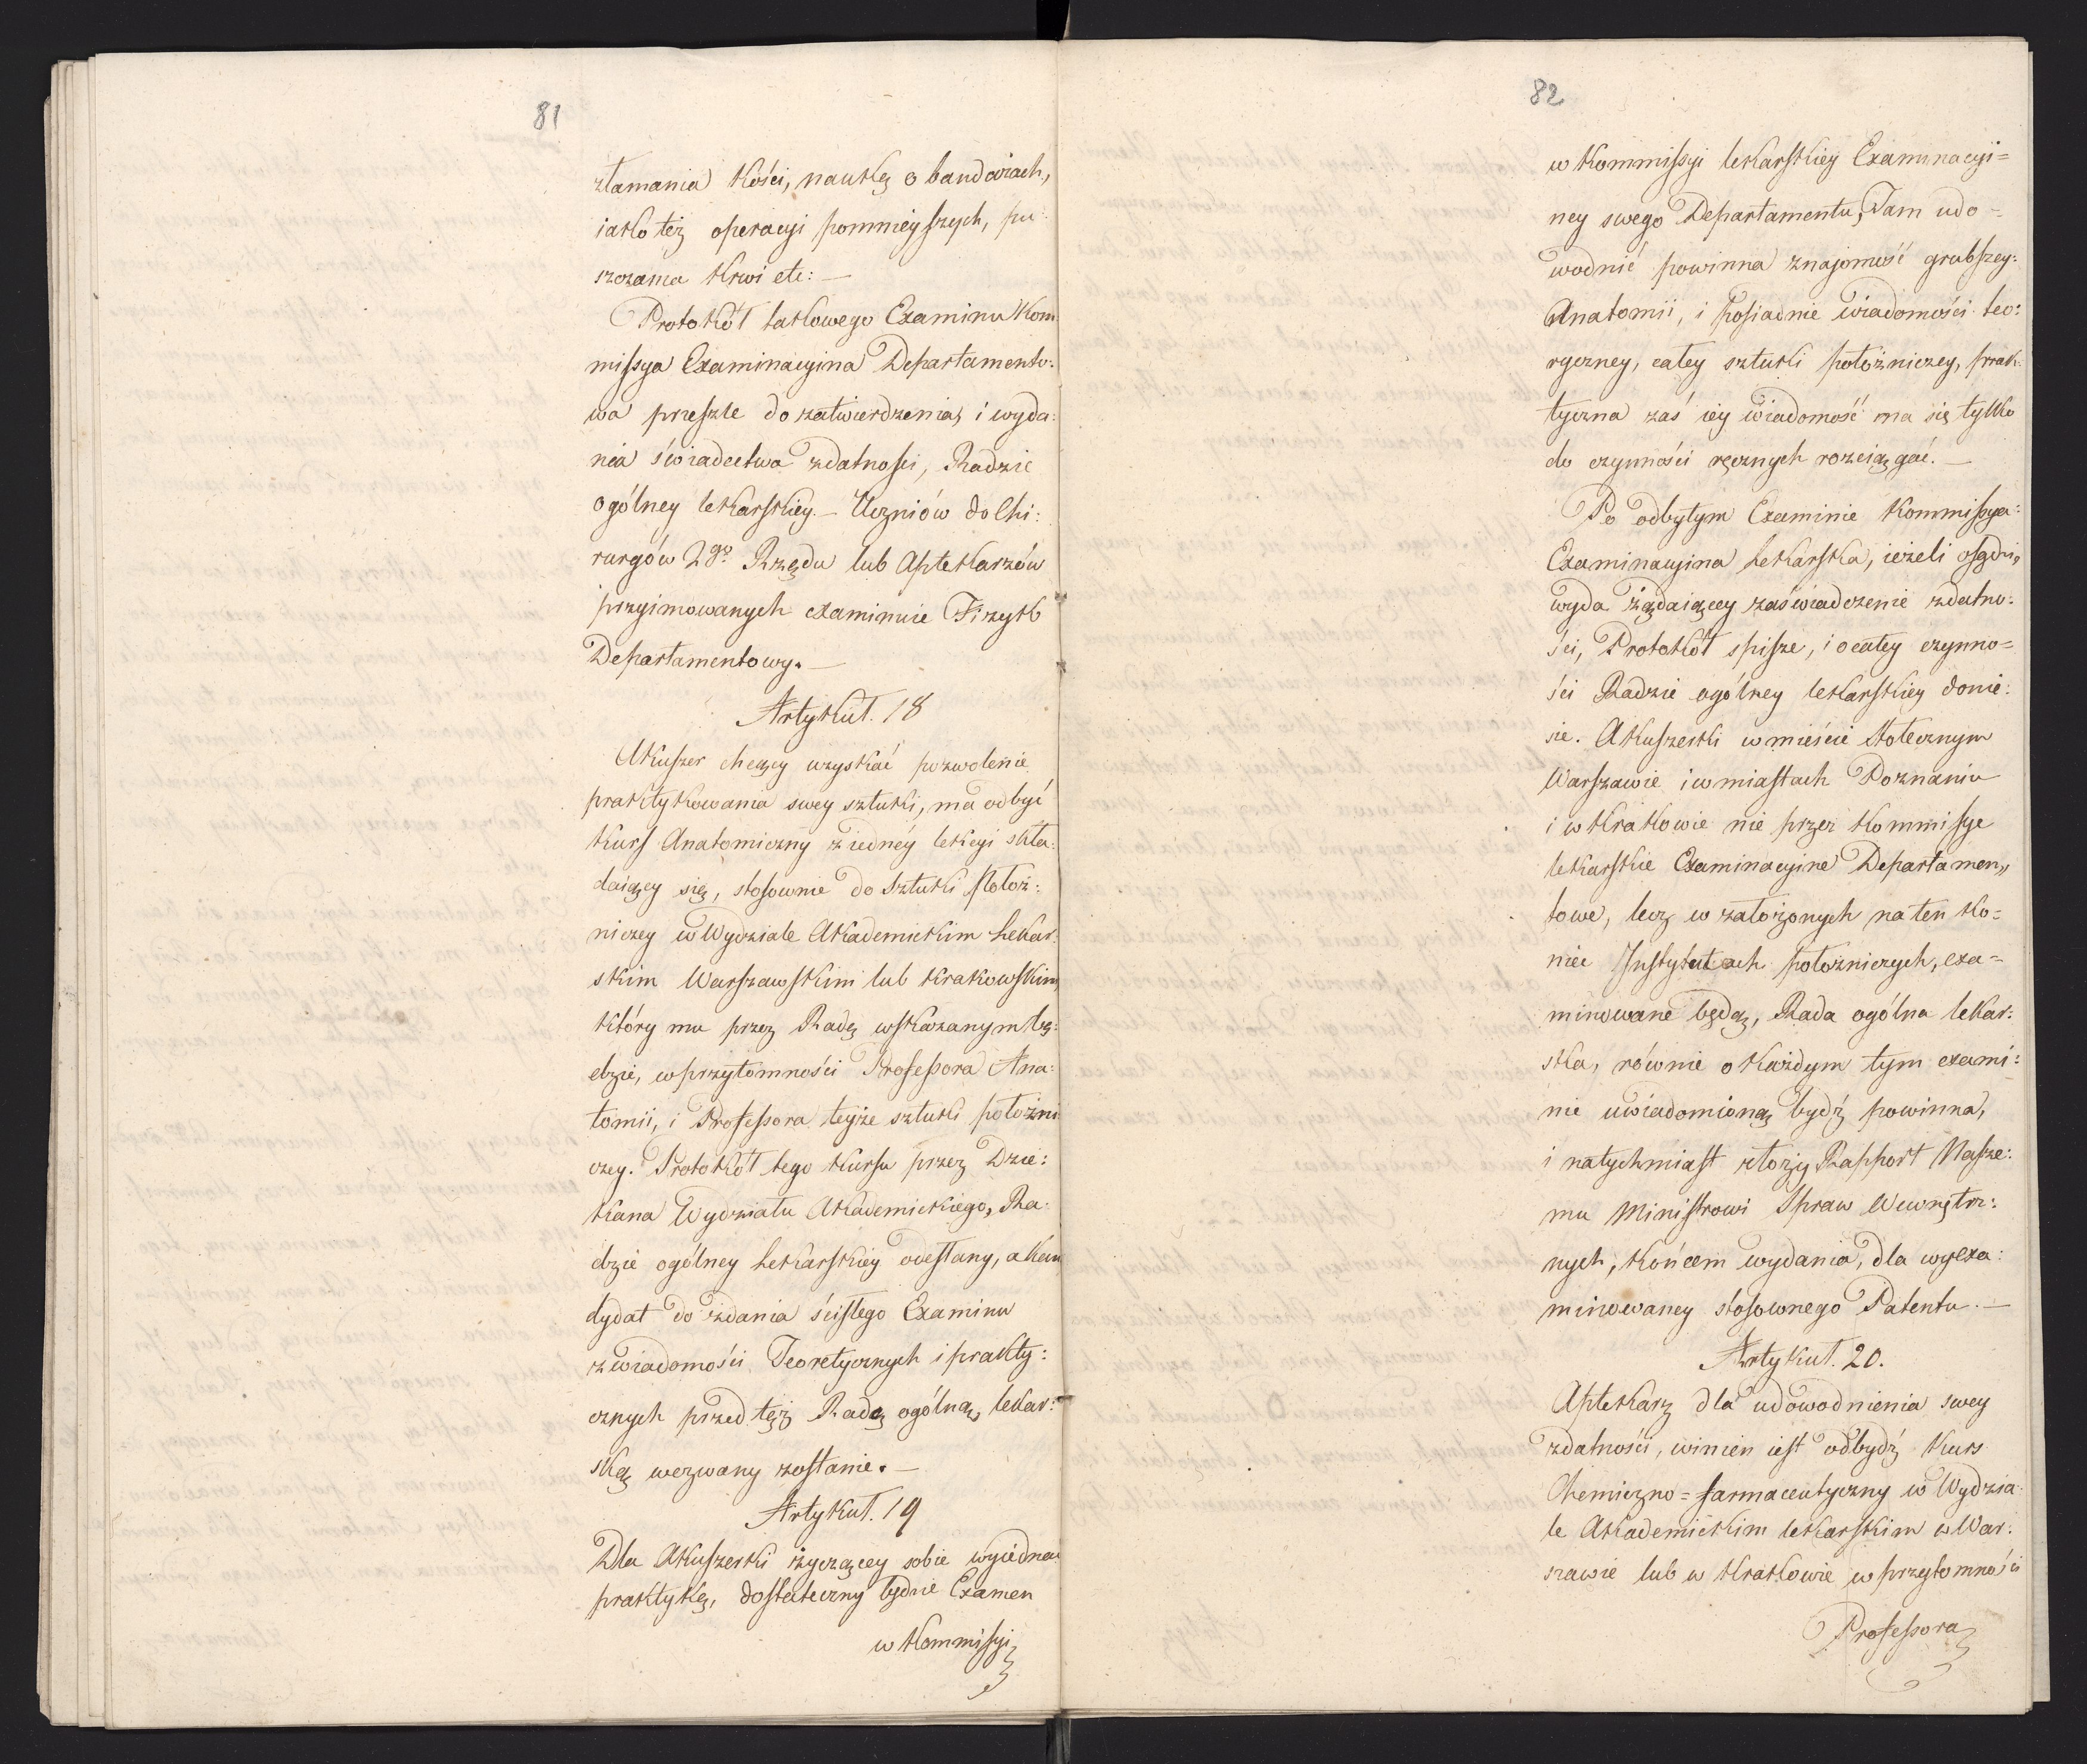 81
złamania kości, naukę o bandażach,
iako też operacyi pomnieyszych, pu:
szczania krwi etc: —
Protokół takowego Examinu Kom:
missya Examinacyina Departamento:
wa prześle do zatwierdzenia, i wyda:
nia świadectwa zdatności, Radzie
ogólney lekarskiey. — Uczniów do Chi:
rurgów 2go Rzędu lub Aptekarzów
przyimowanych examinuie Fizyk
Departamentowy. —
Artykuł. 18
Akuszer chcący uzyskać pozwolenie
praktykowania swey sztuki, ma odbyć
kurs Anatomiczny z iedney lekcyi skła:
daiący się, stosownie do Sztuki Położ:
niczey w Wydziale Akademickim Lekar:
skim Warszawskim lub Krakowskim
który mu przez Radę wskazanym bę:
dzie, w przytomności Professora Ana:
tomii, i Professora teyże sztuki położni
czey. Protokół tego kursu przez Dzie:
kana Wydziału Akademickiego, Ra:
dzie ogólney Lekarskiey odesłany, a kan
dydat do zdania ścisłego Examinu
z wiadomości Teoretycznych i prakty:
cznych przed tęż Radę ogólną, lekar:
ską wezwany zostanie. —
Artykuł. 19
Dla Akuszerki życzącey sobie wyiednać
praktykę, dostateczny będzie Examen
w Kommissyi
82
w Kommissyi lekarskiey Examinacyi=
ney swego Departamentu, Tam udo=
wodnić powinna znajomość grubszey:
Anatomii, i posiadnie wiadomości teo:
ryczney, całey sztuki położniczey, prak:
tyczna zaś iey wiadomość ma się tylko
do czynności ręcznych rozciągać. —
Po odbytym Examinie Kommissya:
Examinacyina Lekarska, ieżeli osądzi,
wyda żądaiącey zaświadczenie zdatno:
ści, Protokół spisze, i o całey czynno=
ści Radzie ogólney lekarskiey donie:
sie. Akuszerki w mieście Stołecznym
Warszawie i w miastach Poznaniu
i w Krakowie nie przez Kommissye
lekarskie Examinacyine Departamen„
towe, lecz w założonych na ten ko=
niec Instytutach położniczych, exa=
minowane będą, Rada ogólna lekar:
ska, równie o każdym tym exami:
nie uwiadomioną bydź powinna,
i natychmiast złoży Rapport Nasze:
mu Ministrowi Spraw Wewnętrz:
nych, końcem wydania, dla wyexa:
minowaney stosownego Patentu. —
Artykuł. 20.
Aptekarz dla udowodnienia swey
zdatności, winien iest odbydź kurs
Chemiczno=farmaceutyczny w Wydzia:
le Akademickim lekarskim w War:
szawie lub w Krakowie w przytomności
Professora